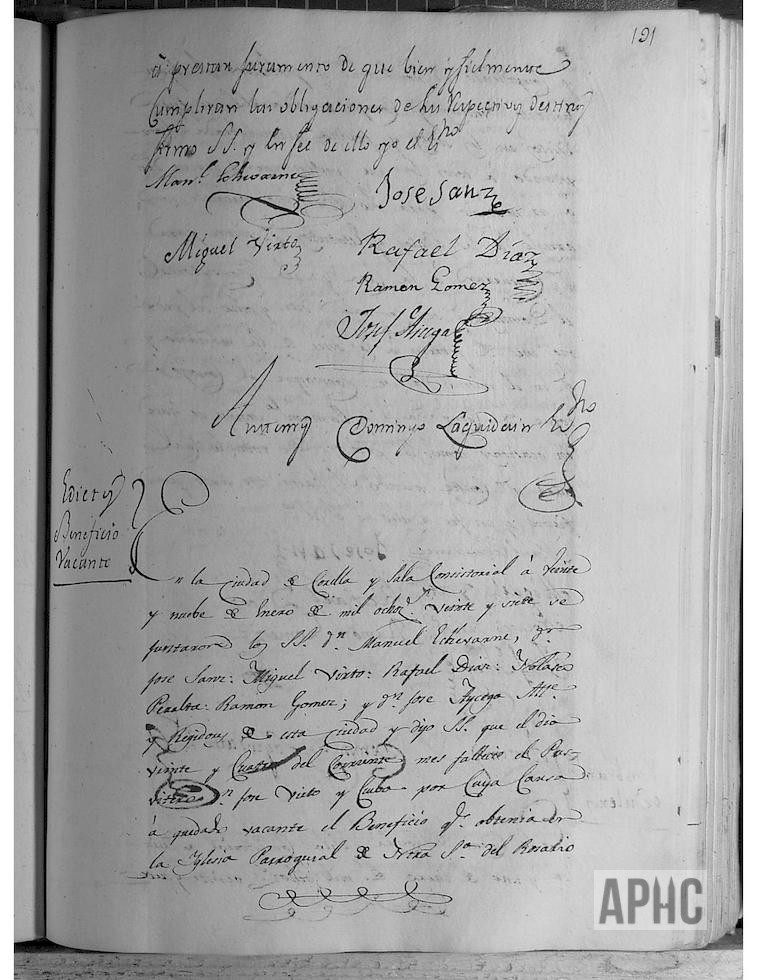 191
á prestar juramento de que bien y fielmente
Cumpliran las obligaciones de sus respectivos destinos
firmo SS. y en fee de ello yo el Sno
Manl. Echevarne
Jose Sanz
Miguel Virto
Rafael Díaz
Ramon Gomez
Josef
Domingo Laquidain
Edictos
Beneficio
Vacante
En la Ciudad de Corella y Sala Consistorial á Veinte
y nuebe de Enero de mil ochoz. Veinte y siete se
juntaron los SS. Dn. Manuel Echevarne, Dn.
Jose Sanz: Miguel Virto: Rafael Diaz: Nolasco
Peralta: Ramon Gomez; y Dn. Jose Aycega Alle
y Regidores de esta Ciudad y dijo SS. que el dia
veinte y Cuatro del Corriente mes fallecio el Pres-
vitero Dn. Jose Virto y Cuba por Cuya Causa
á quedado vacante el Beneficio qe. obtenia en
la Yglesia Parroquial de Ntra Sa. del Rosario
APHC